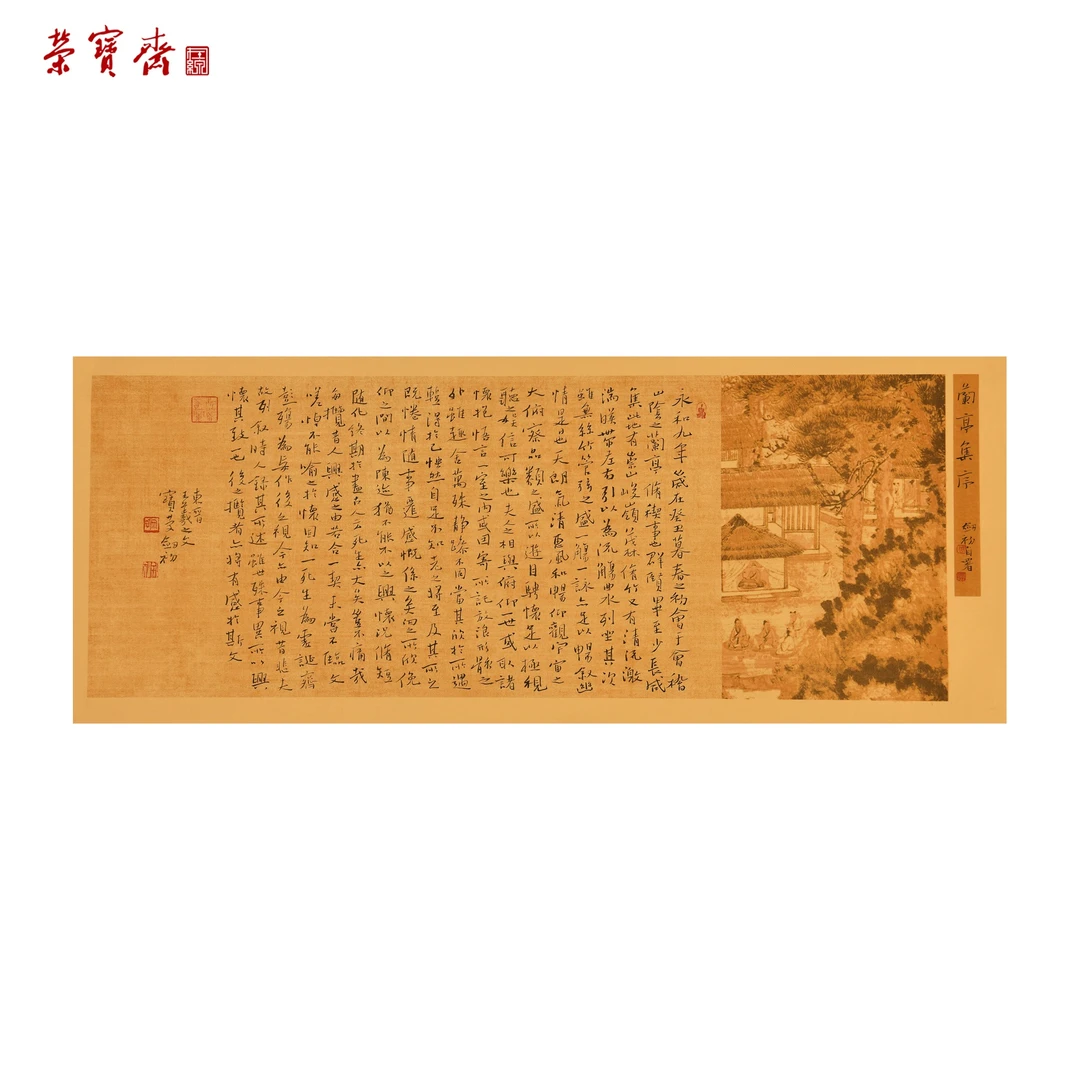 榮寶齋
蘭亭集序
劍初自署
永和九年歲在癸丑暮春之初會于會稽
山陰之蘭亭脩禊事也群賢畢至少長咸
集此地有崇山峻嶺茂林脩竹又有清流激
湍暎帶左右引以為流觴曲水列坐其次
雖無絲竹管弦之盛一觴一詠亦足以暢敘幽
情是日也天朗氣清惠風和暢仰觀宇宙之
大俯察品類之盛所以遊目騁懷足以極視
聽之娛信可樂也夫人之相與俯仰一世或取諸
懷抱悟言一室之內或因寄所託放浪形骸之
外雖趣舍萬殊靜躁不同當其欣於所遇
輒得於己怏然自足不知老之將至及其所之
既惓情隨事遷感慨係之矣向之所欣俛
仰之間以為陳迹猶不能不以之興懷況脩短
隨化終期於盡古人云死生亦大矣豈不痛哉
每攬昔人興感之由若合一契未嘗不臨文
嗟悼不能喻之於懷固知一死生為虛誕齊
彭殤為妄作後之視今亦由今之視昔悲夫
故列敘時人錄其所述雖世殊事異所以興
懷其致一也後之攬者亦將有感於斯文
東晉
王羲之文
劍初